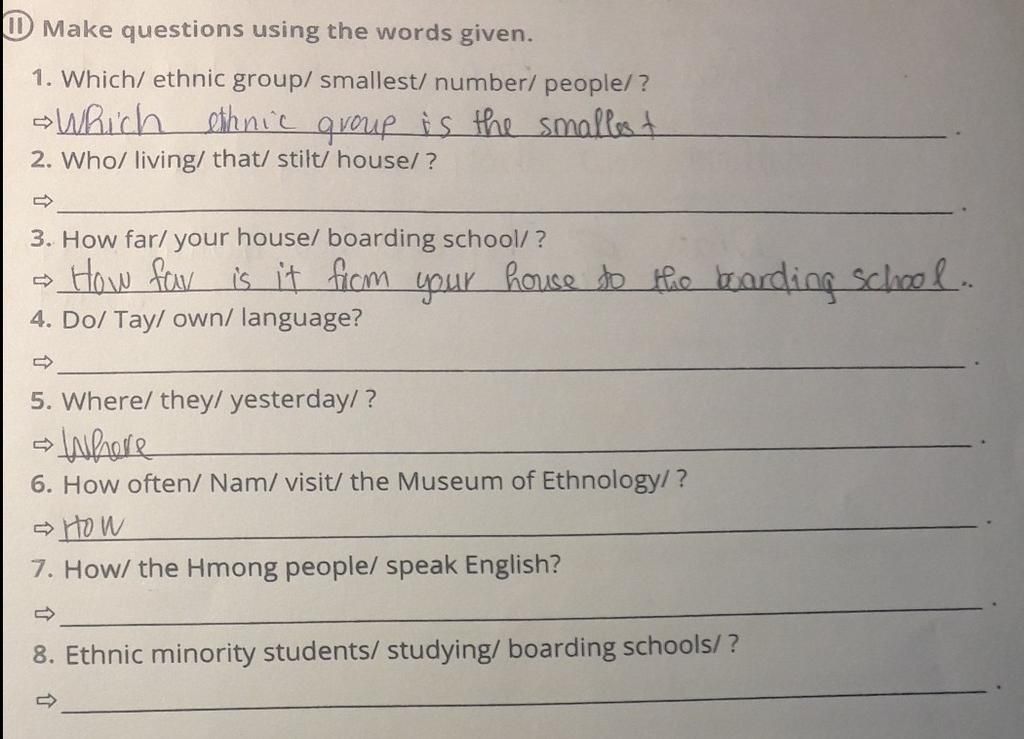 II Make questions using the words given.
1. Which/ ethnic group/ smallest/ number/ people/ ?
⇨ Which ethnic group is the smallest .
2. Who/ living/ that/ stilt/ house/ ?
⇨ .
3. How far/ your house/ boarding school/ ?
⇨ How far is it from your house to the boarding school..
4. Do/ Tay/ own/ language?
⇨ .
5. Where/ they/ yesterday/ ?
⇨ Where .
6. How often/ Nam/ visit/ the Museum of Ethnology/ ?
⇨ How .
7. How/ the Hmong people/ speak English?
⇨ .
8. Ethnic minority students/ studying/ boarding schools/ ?
⇨ .